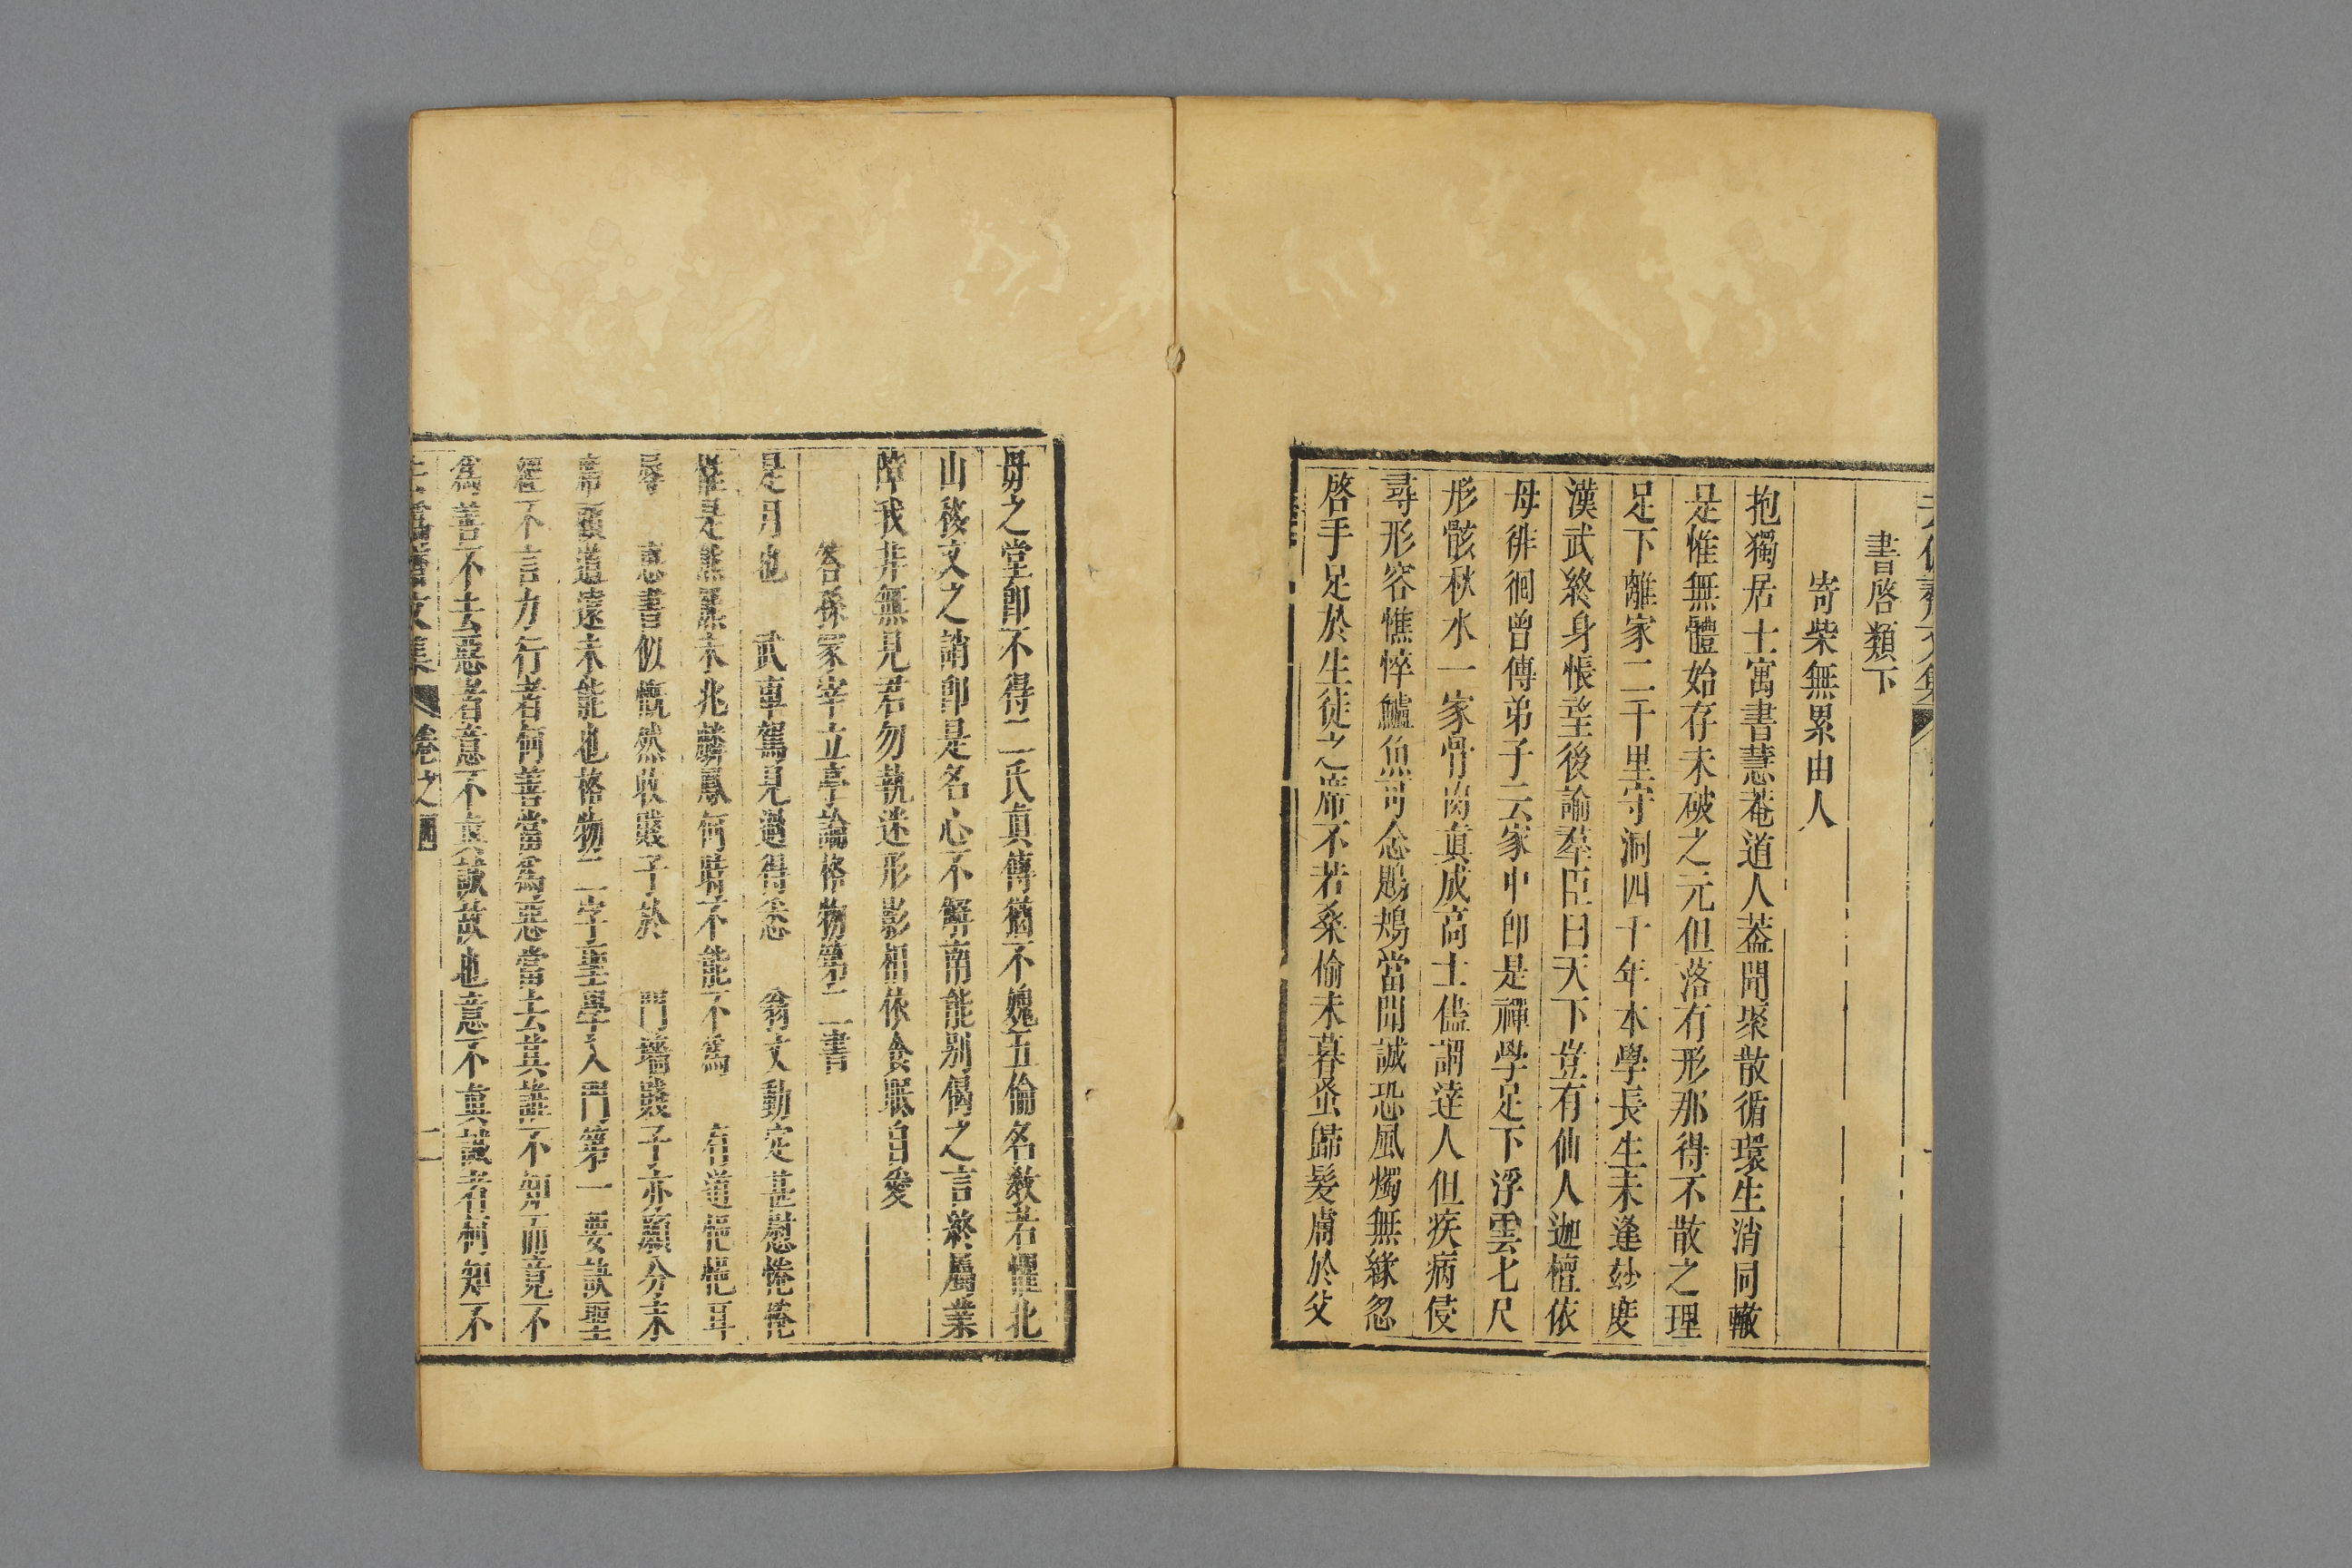 書啓類下
寄柴無累由人
抱獨居士寓書慧菴道人蓋聞聚散循環生消同轍
足惟無體始存未破之元但落有形那得不散之理
足下離家二千里守洞四十年本學長生未逢玅度
漢武終身悵望後諭羣臣曰天下豈有仙人迦檀依
母徘徊曾傳弟子云家中卽是禪學足下浮雲七尺
形骸秋水一家骨肉真成高士儘謂達人但疾病侵
尋形容憔悴鱸魚可念鶗鴂當聞誠恐風燭無緣忽
啓手足於生徒之席不若桑偷未暮蚤歸髮膚於父
毋之堂卽不得二氏真傳猶不媿五倫名教若懼北
山移文之誚卽是名心不解南能别偈之言終屬業
障我井無見君勿執迷形影相依食眠自愛
答孫冡宰立亭論格物第二書
是月也 武車駕見過得悉 翁丈動定甚慰惓惓
惟是熊羆未兆麟鳳何時不能不爲 有道悒悒耳
辱 惠書似慨然收賤子於 門墻賤子亦願分末
席顧道遠未能也格物二字聖學入門第一要訣聖
經不言力行者何善當爲惡當去其誰不知而竟不
爲善不去惡者意不真誠故也意不真誠者何知不
文集 卷之 二